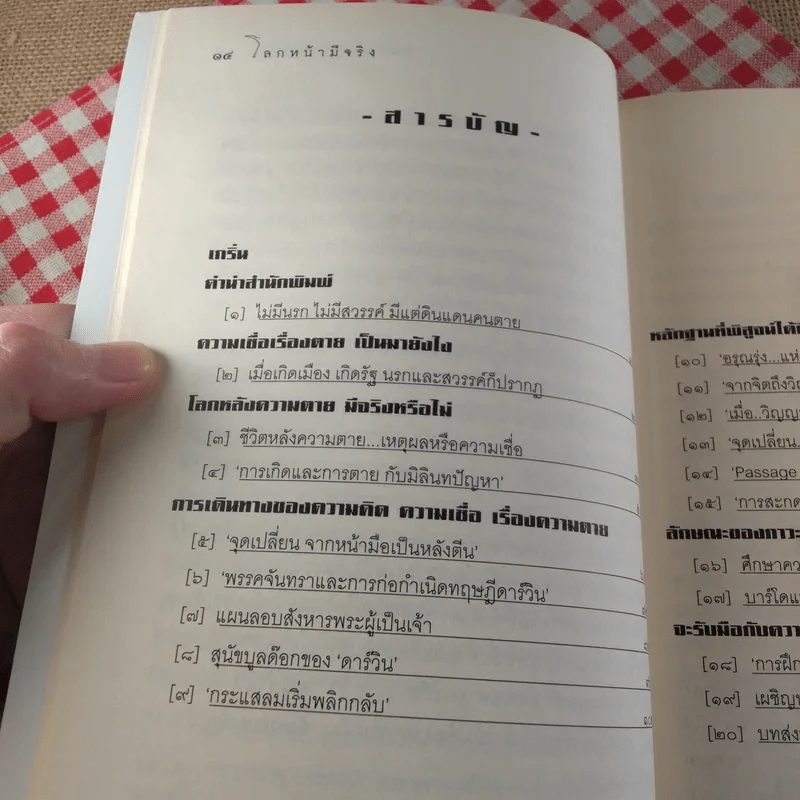 ๑๔ โลกหน้ามีจริง
- สารบัญ -
เกริ่น
คำนำสำนักพิมพ์
[๑] ไม่มีนรก ไม่มีสวรรค์ มีแต่ดินแดนคนตาย
ความเชื่อเรื่องตาย เป็นมายังไง
[๒] เมื่อเกิดเมือง เกิดรัฐ นรกและสวรรค์ก็ปรากฏ
โลกหลังความตาย มีจริงหรือไม่
[๓] ชีวิตหลังความตาย...เหตุผลหรือความเชื่อ
[๔] 'การเกิดและการตาย กับมิลินทปัญหา'
การเดินทางของความคิด ความเชื่อ เรื่องความตาย
[๕] 'จุดเปลี่ยน จากหน้ามือเป็นหลังตีน'
[๖] 'พรรคจันทราและการก่อกำเนิดทฤษฎีดาร์วิน'
[๗] แผนลอบสังหารพระผู้เป็นเจ้า
[๘] สุนัขบูลด๊อกของ 'ดาร์วิน'
[๙] 'กระแสลมเริ่มพลิกกลับ'
หลักฐานที่พิสูจน์ได้
[๑๐] 'อรุณรุ่ง...แห่
[๑๑] 'จากจิตถึงวิ
[๑๒] 'เมื่อ..วิญญ
[๑๓] 'จุดเปลี่ยน.
[๑๔] 'Passage
[๑๕] 'การสะกด
ลักษณะของภาวะ
[๑๖] ศึกษาคว
[๑๗] บาร์โดแ
จะรับมือกับควา
[๑๘] 'การฝึก
[๑๙] เผชิญ
[๒๐] บทส่ง